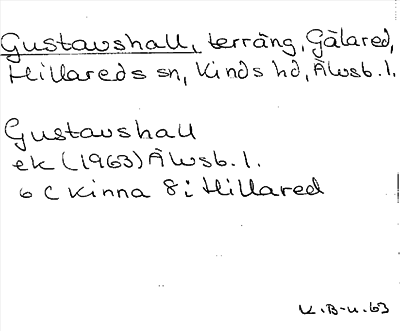 Gustavshall, terräng, Gälared,
Hillareds sn, Kinds hd, Älvsb. l.
Gustavshall
ek (1963) Älvsb. l.
6 C Kinna 8 i Hillared
K. B-n. 63